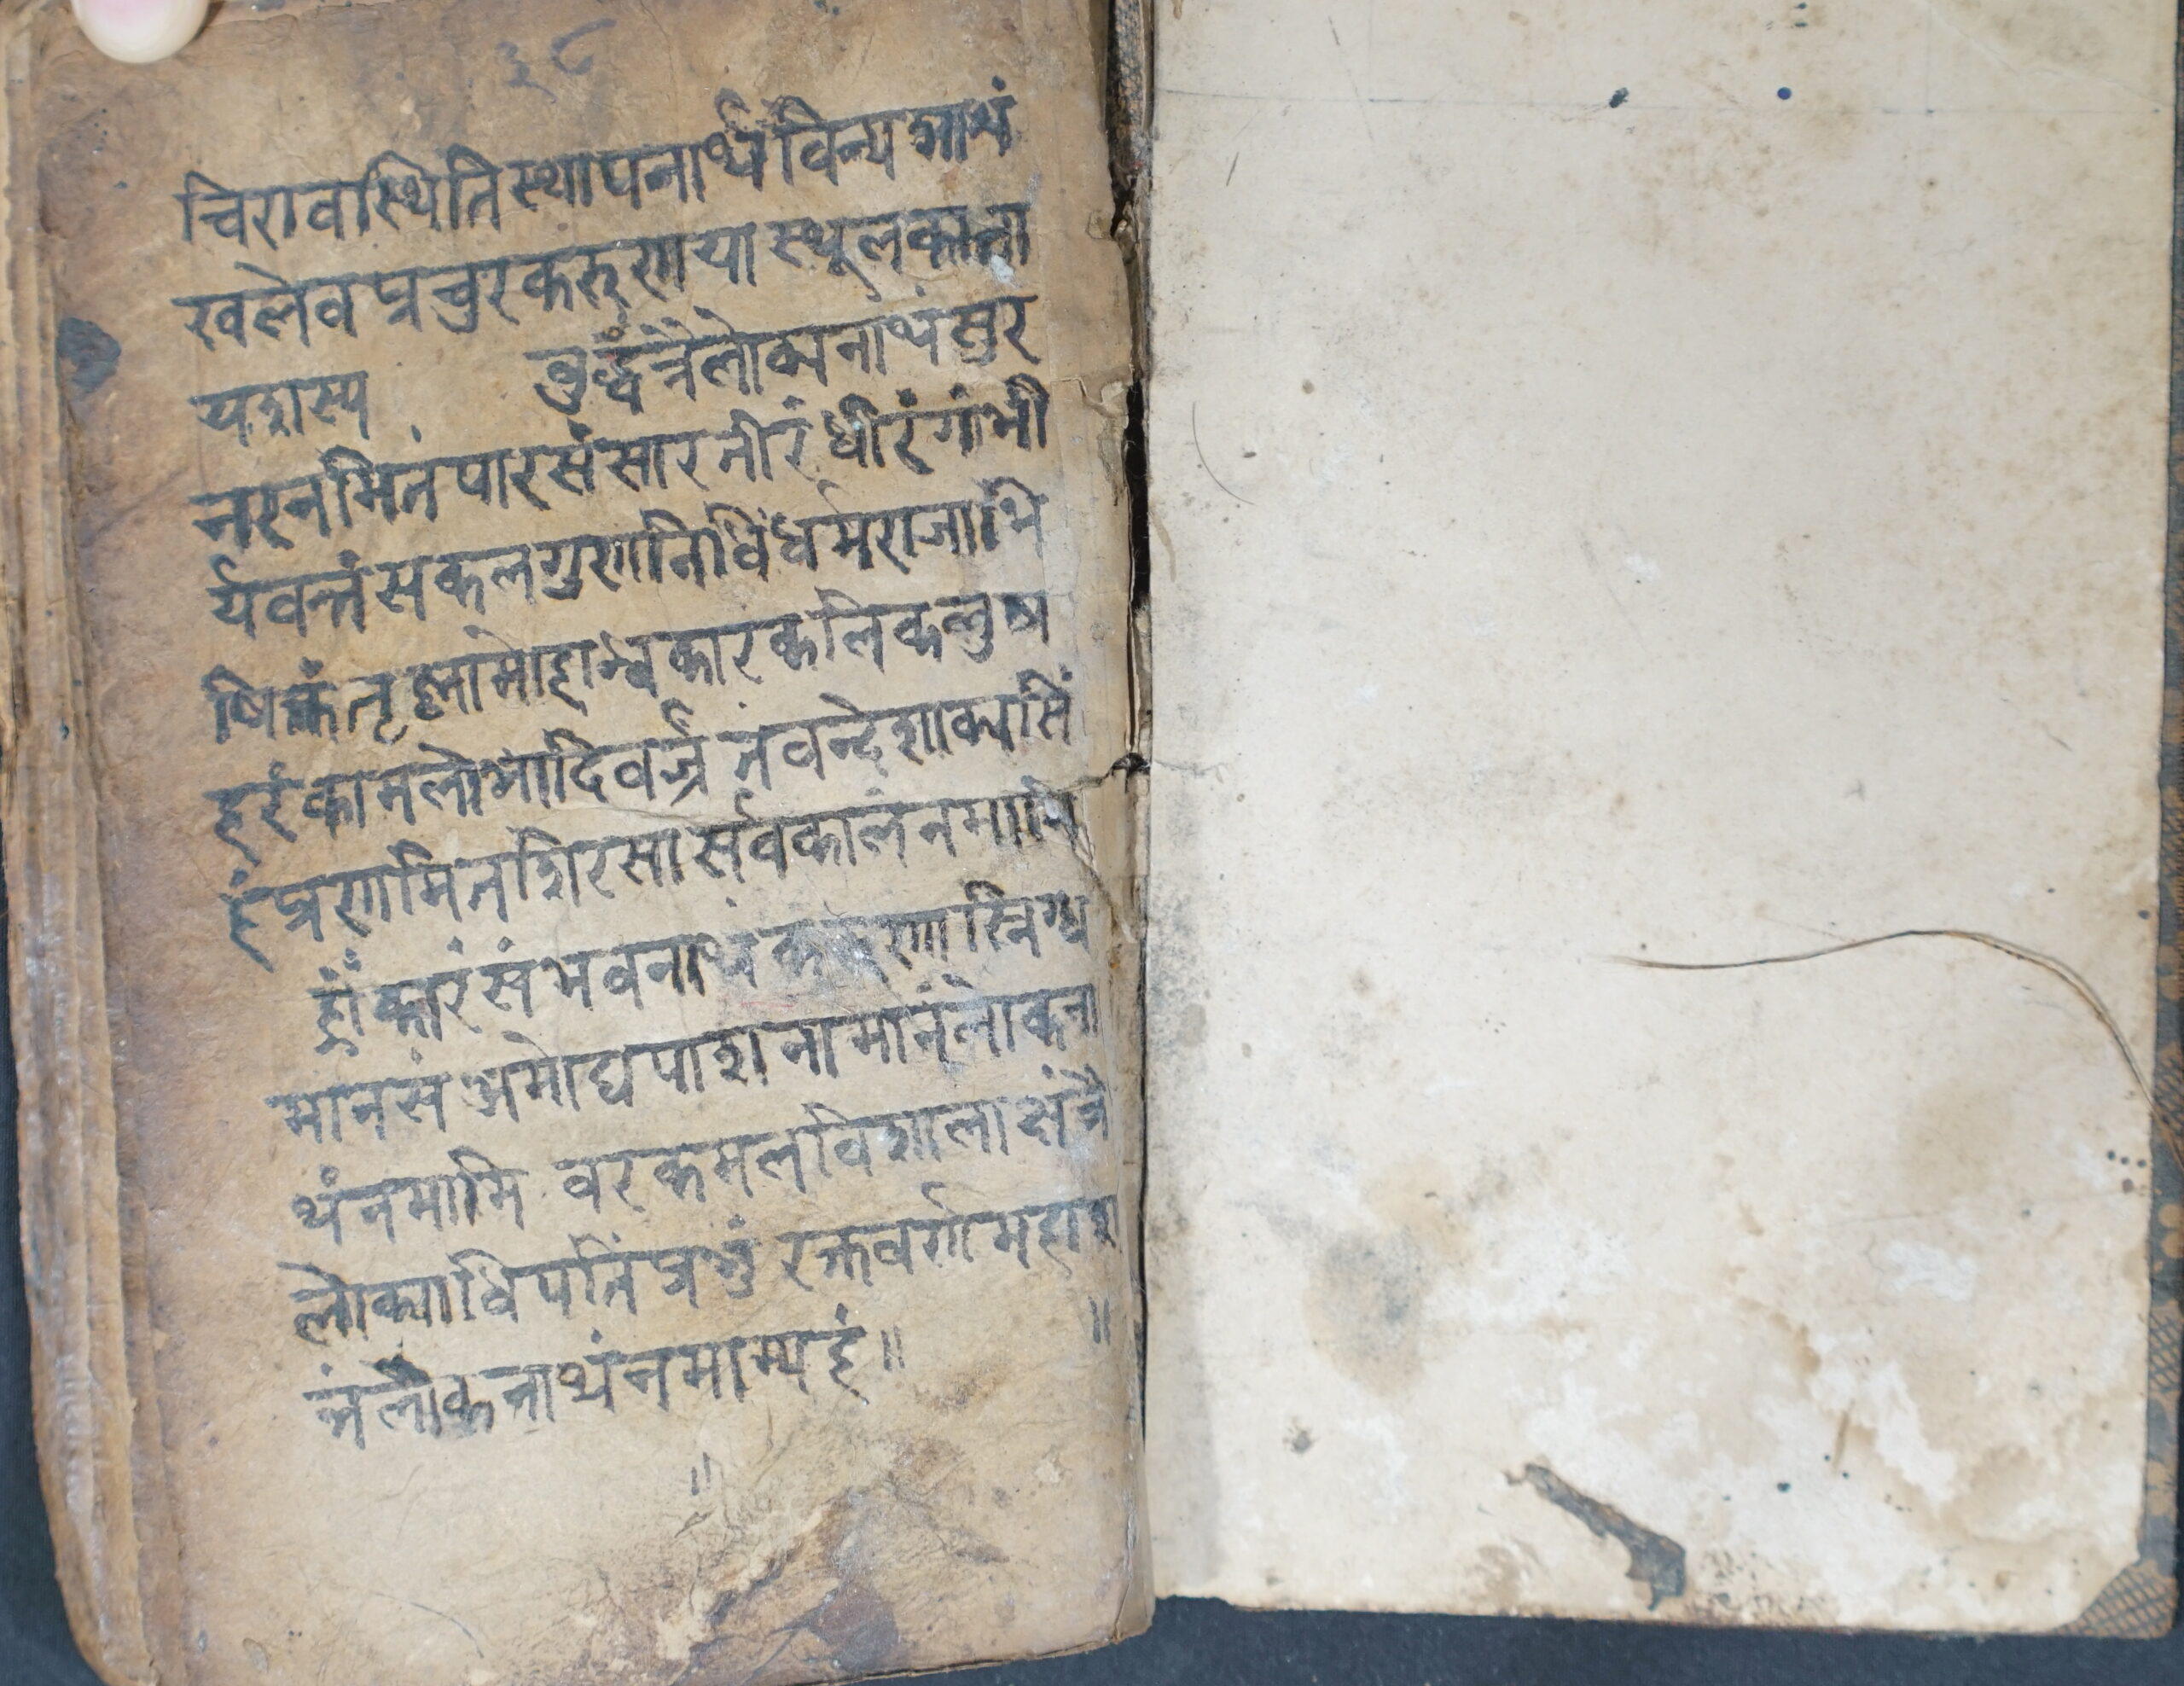 ३८
चिरावस्थितिस्थापनार्थविन्यआथं
खलेवप्रचुरकरुणयास्थूलकान्ता
यशस्य बुद्धंत्रैलोक्यनाथंसुर
नरनमितंपारसंसारतीरंधीरंगांभी
र्यवन्तंसकलगुणनिधिंधर्मराजाभि
षिक्तंतृष्णामोहान्धकारंकलिकलुष
हरंकामलोभादिवर्ज्रंतंवन्देशाक्यसिं
हंप्रणमितशिरसासर्वकालंनमामि
ह्रींकारंसंभवनाथंकरुणास्निग्ध
मानसं अमोघपाशनामानंलोकना
थंनमामि वरकमलविशालाक्षंत्रै
लोक्याधिपतिंप्रभुं रक्तवर्णामहाश
न्तंलोकनाथंनमाम्यहं॥ ॥
॥